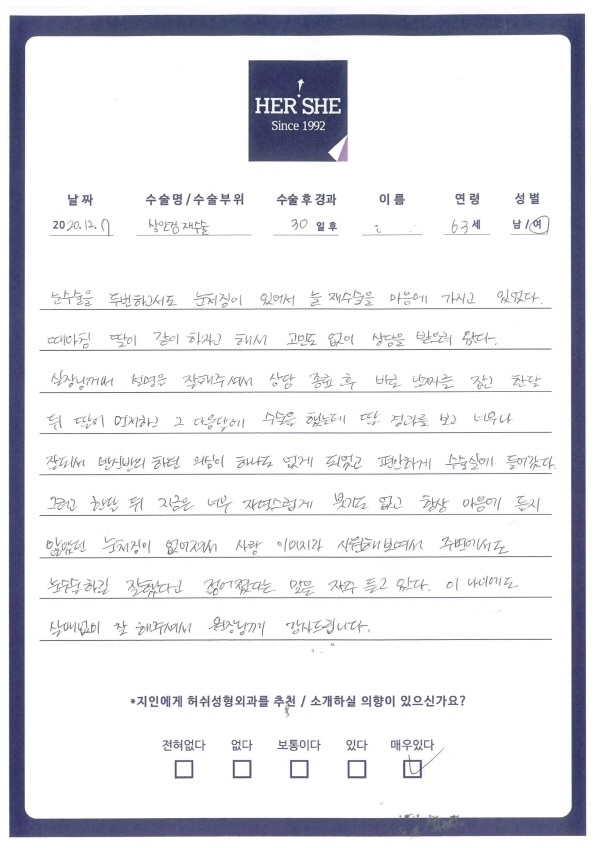 HER SHE
Since 1992
날짜 수술명/수술부위 수술후경과 이름 연령 성별
2020.12.17 상안검재수술 30일후 63세 남/여
눈수술을 두번하고서도 눈처짐이 있어서 늘 재수술을 마음에 가지고 있었다.
때마침 딸이 같이 하자고 해서 고민도 없이 상담을 받으러 왔다.
실장님께서 설명을 잘해주셔서 상담 종료 후 바로 날짜를 잡고 한달
뒤 딸이 먼저하고 그 다음달에 수술을 했는데 딸 결과를 보고 너무나
잘되서 반신반의 하던 의심이 하나도 없게 되었고 편안하게 수술실에 들어갔다.
그리고 한달 뒤 지금은 너무 자연스럽게 붓기도 없고 항상 마음에 들지
않았던 눈처짐이 없어져서 사람 이미지가 시원해보여서 주변에서도
눈수술하길 잘했다고 젊어졌다는 말을 자주 듣고 있다. 이 나이에도
실패없이 잘 해주셔서 원장님께 감사드립니다.
*지인에게 허쉬성형외과를 추천 / 소개하실 의향이 있으신가요?
전혀없다 없다 보통이다 있다 매우있다